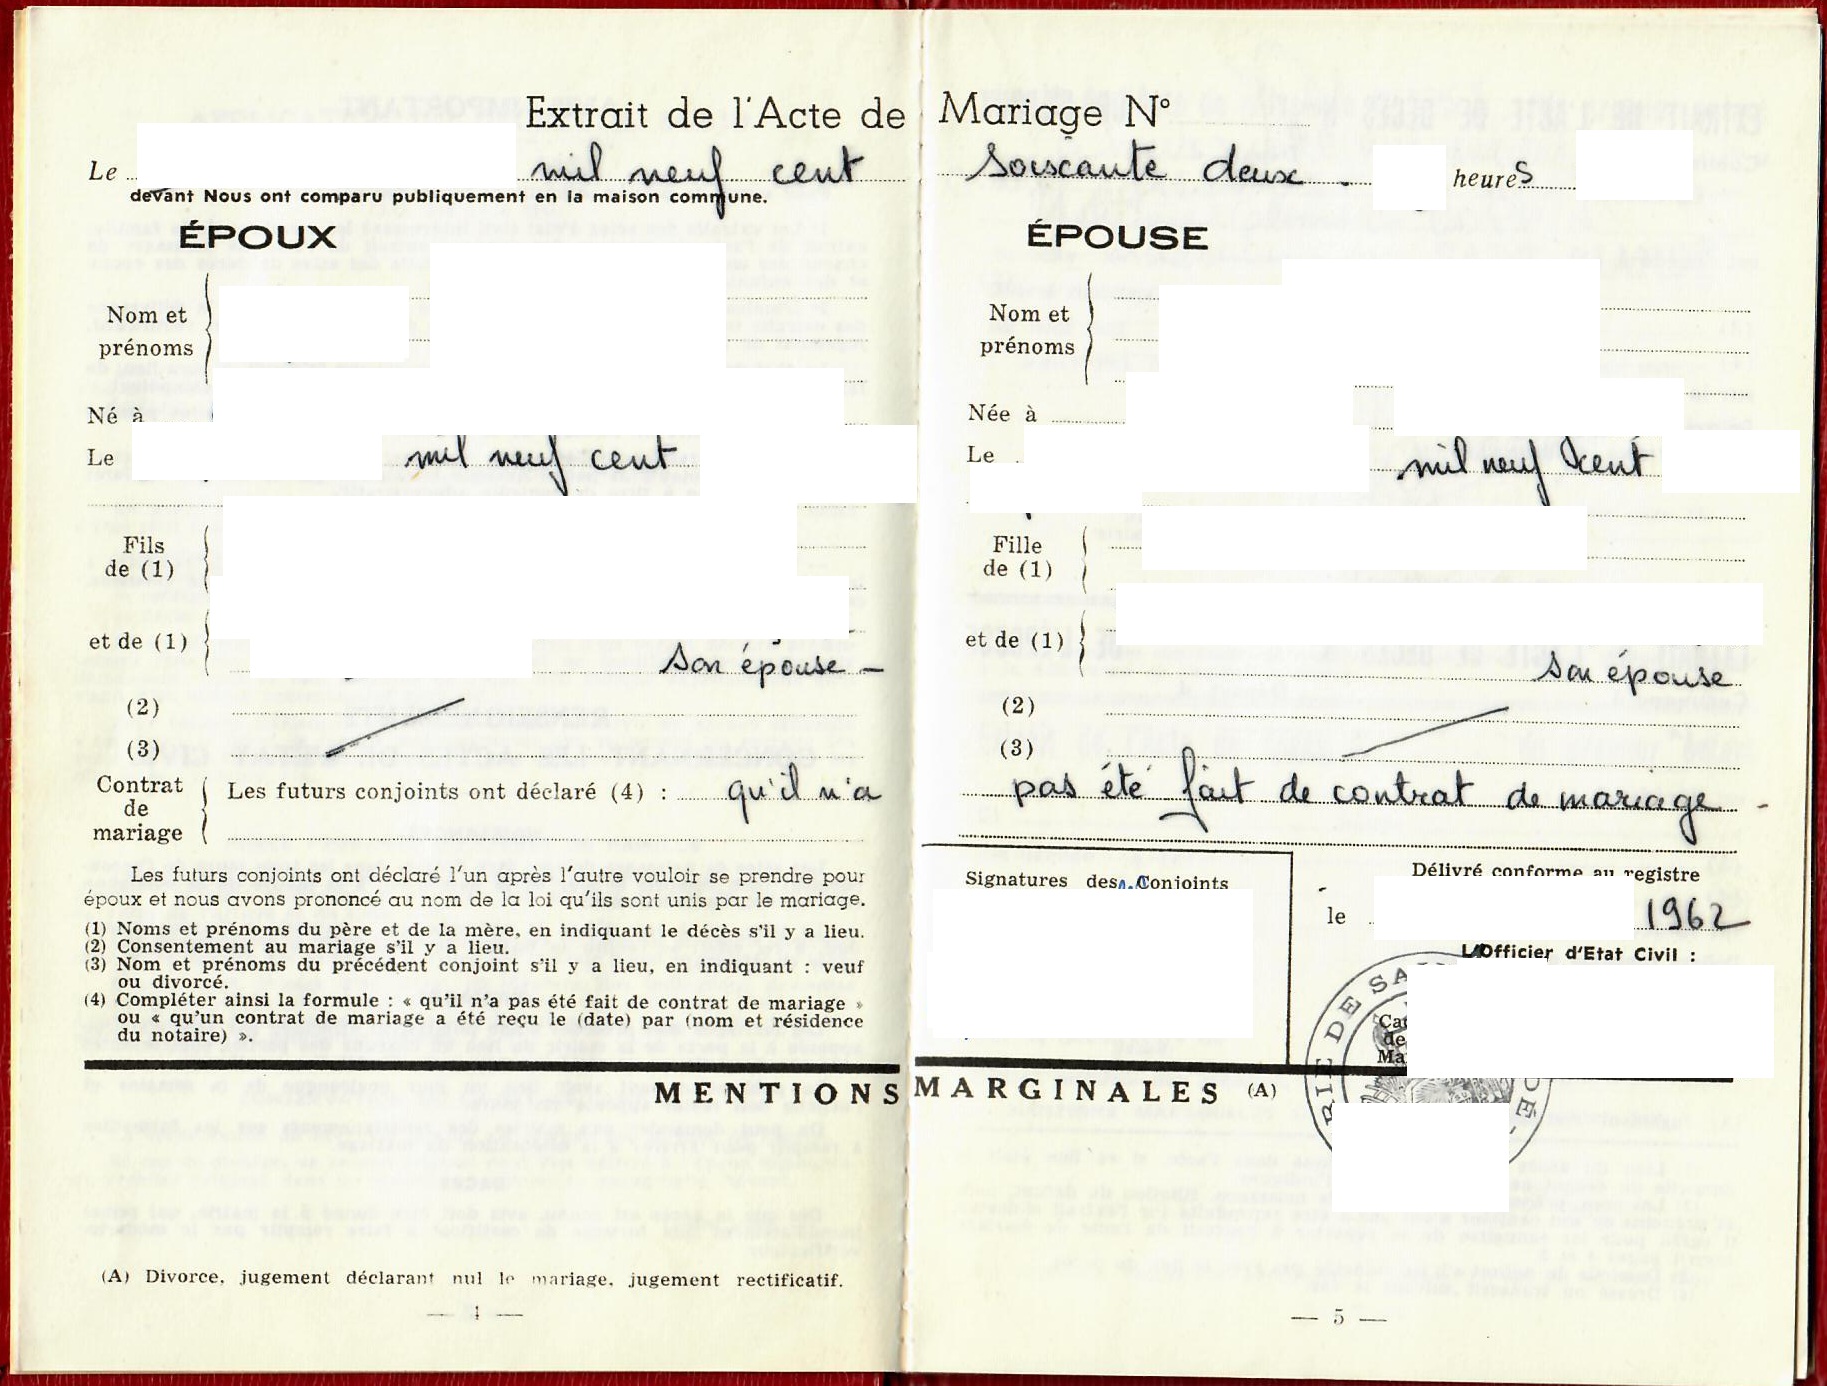 Extrait de l'Acte de Mariage N°
Le mil neuf cent soiscante deux - heures
devant Nous ont comparu publiquement en la maison commune.
ÉPOUX
Nom et
prénoms
Né à
Le mil neuf cent
Fils
de (1)
et de (1)
son épouse -
(2)
(3)
Contrat
de
mariage
Les futurs conjoints ont déclaré (4) : qu'il n'a
Les futurs conjoints ont déclaré l'un après l'autre vouloir se prendre pour
époux et nous avons prononcé au nom de la loi qu'ils sont unis par le mariage.
(1) Noms et prénoms du père et de la mère, en indiquant le décès s'il y a lieu.
(2) Consentement au mariage s'il y a lieu.
(3) Nom et prénoms du précédent conjoint s'il y a lieu, en indiquant : veuf
ou divorcé.
(4) Compléter ainsi la formule : « qu'il n'a pas été fait de contrat de mariage »
ou « qu'un contrat de mariage a été reçu le (date) par (nom et résidence
du notaire) ».
ÉPOUSE
Nom et
prénoms
Née à
Le mil neuf cent
Fille
de (1)
et de (1)
son épouse
(2)
(3)
pas été fait de contrat de mariage -
Signatures des Conjoints
Délivré conforme au registre
le 1962
L'Officier d'Etat Civil :
RIE DE SA
OE -
Ca
de
Ma
MENTIONS MARGINALES (A)
(A) Divorce, jugement déclarant nul le mariage, jugement rectificatif.
— 4 —
— 5 —